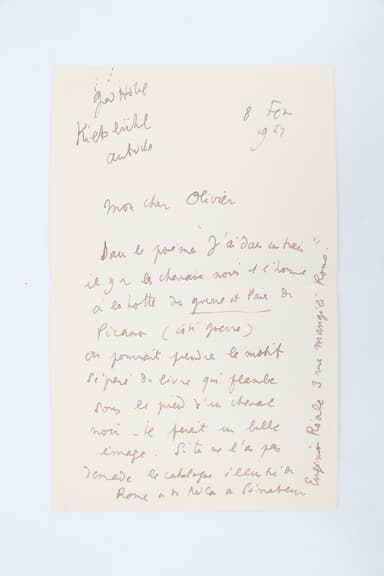 Gd Hôtel
Kitzbühl
autriche
8 Fev
1954
Mon cher Olivier
Dans le poème "J'ai dans un train"
il y a les chevaux noirs et l'homme
à la hotte du guerre et Paix de
Picasso (côté guerre)
on pourrait prendre le motif
séparé du livre qui flambe
sous les pieds d'un cheval
noir - Il ferait une belle
image. Si tu ne l'as pas
demande le catalogue illustré de
Rome a
Eugenio Reale 3 rue mangili Rome.